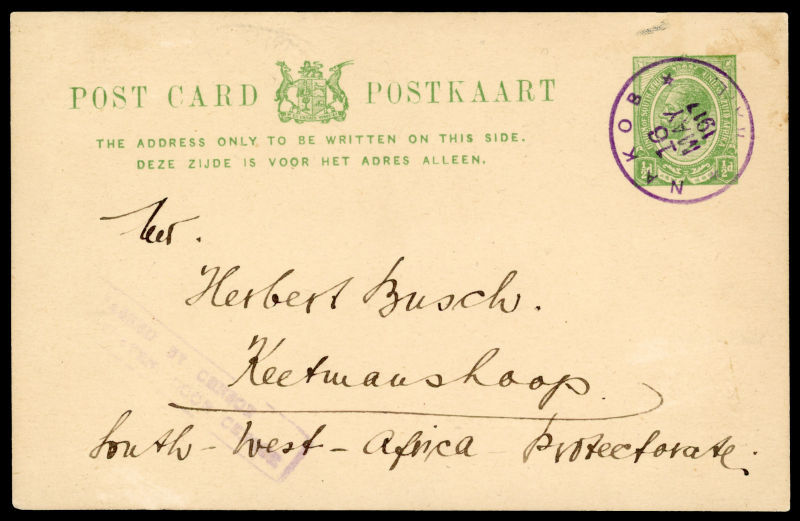 POST CARD POSTKAART
THE ADDRESS ONLY TO BE WRITTEN ON THIS SIDE.
DEZE ZIJDE IS VOOR HET ADRES ALLEEN.
NAKOB
16
MAY
1917
½d ½d
Mr.
Herbert Busch.
Keetmanshoop.
South-West-Africa-Protectorate.
BY CENSOR